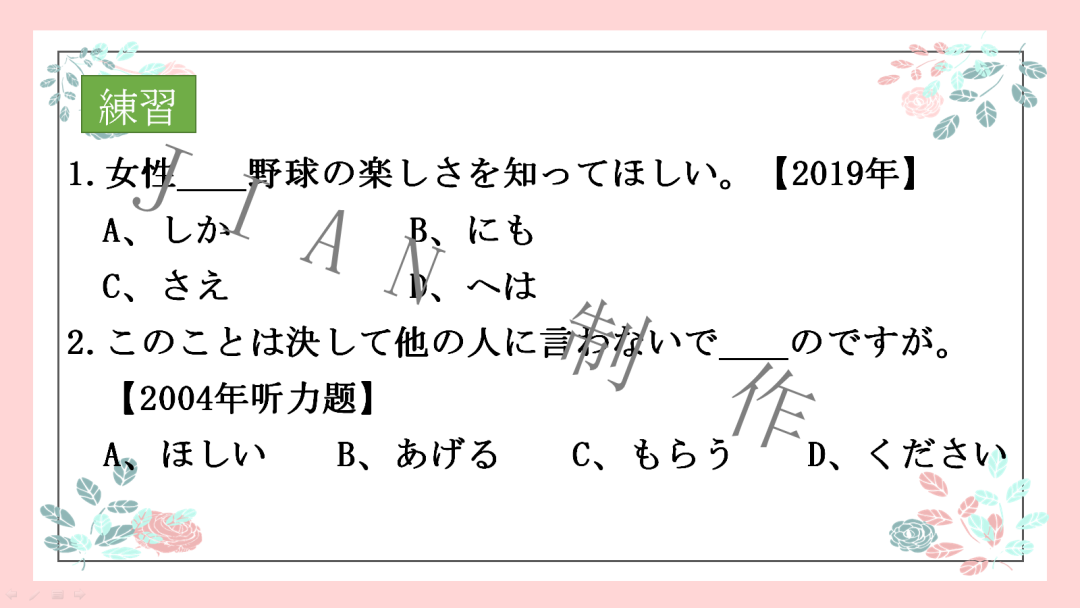 練習
1.女性____野球の楽しさを知ってほしい。【2019年】
A、しか B、にも
C、さえ D、へは
2.このことは決して他の人に言わないで____のですが。
【2004年听力题】
A、ほしい B、あげる C、もらう D、ください
JIAN制作